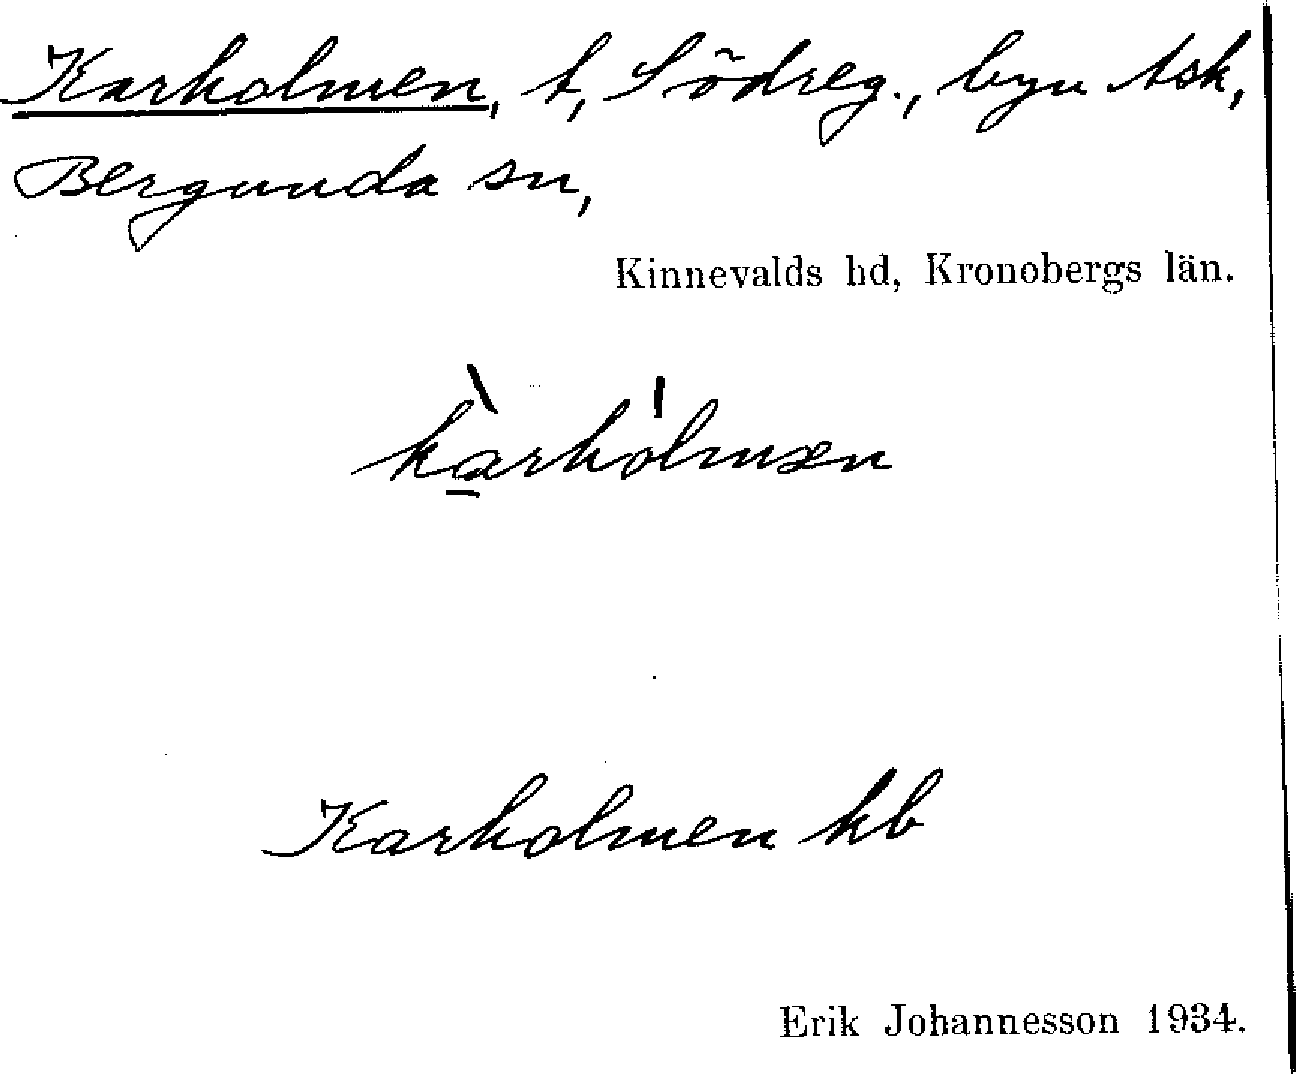 Karholmen, t, Södreg., byn Ask,
Bergunda sn,
Kinnevalds hd, Kronobergs län.
kàrhólmən
Karholmen hb
Erik Johannesson 1934.